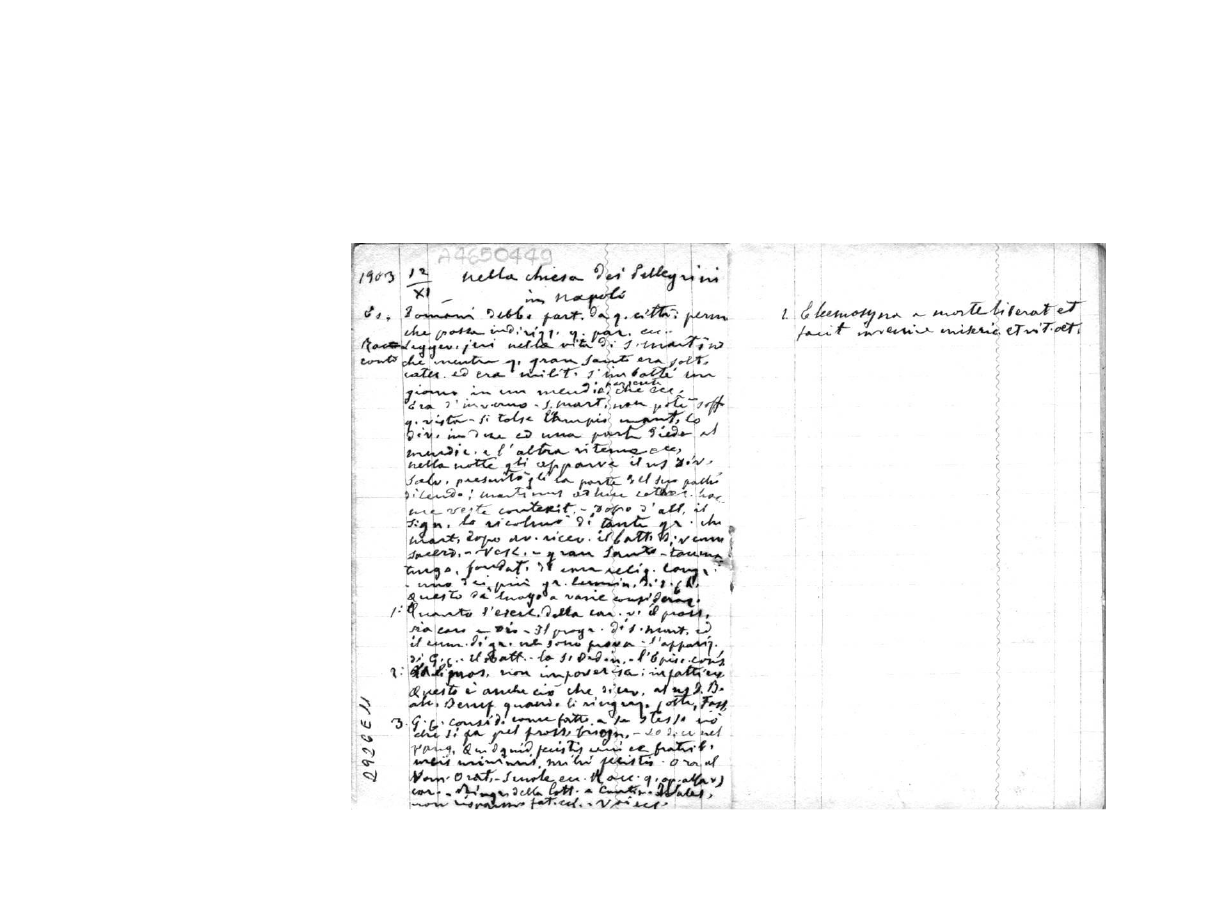 A4650449
1903 12/XI nella chiesa dei Pellegrini
in Napoli
Es. Domani debbo part. da q. città: perm
che possa indirizz. q. par. ecc.
Racconto Leggev. jeri nella vita di S. Martino
che mentre q. gran Santo era solt.
catec. ed era milit. s'imbatté un
giorno in un mendic. che ecc.
Era d'inverno - S. Mart. non poté soff
q. vista - si tolse l'ampio mant. lo
div. in due ed una parte diede al
mendic. e l'altra ritenne ecc.
nella notte gli apparve il ns Div.
Salv. presentògli la parte del suo
dicendo: Martinus adhuc catec. hac
me veste contexit. - Dopo d'all. il
Sign. lo ricolmò di tante gr. che
Mart. dopo av. ricev. il batt. divenne
sacerd. - Vesc. - gran Santo - tauma
turgo, fondat. di una relig. congr.
- uno dei più gr. lumin. di
Questo dà luogo a varie consideraz.
1: Quanto l'eserc. della car. v. il pross.
sia caro a Dio - Il progr. di S. Mart. ed
il cum. di gr. ne sono prova - l'appariz.
di G. C. - il Batt. - la
2: non impoverisce: infatti
Questo è anche ciò che dicev. al ns
Benef. quando li ringraz.
3. G. C. consid. come fatto a se stesso ciò
che si fa pel pross. bisogn. - Lo dice nel
Vang. Quidquid fecistis uni ex fratrib.
meis minimis, mihi fecistis. Ora al
Vom. Orat. - Scuole ecc. Racc. q. op. alla vs
car. - Ringr. della
non risparmio fat. ed. - Voi ecc.
2926E11
1. Eleemosyna a morte liberat et
facit invenire miseric et vit. aet.